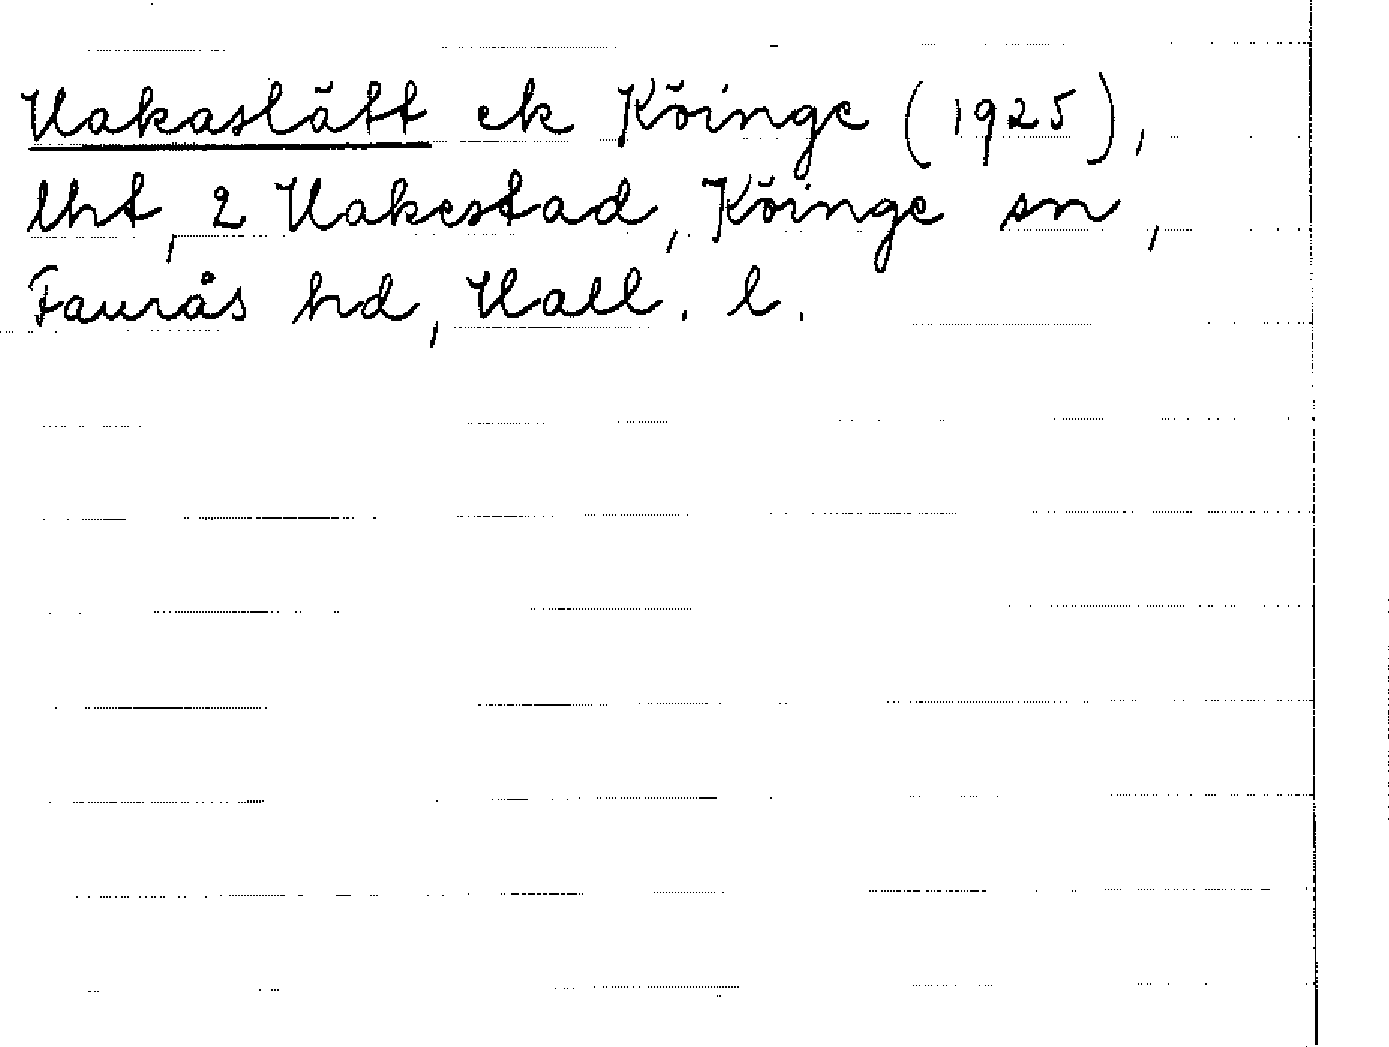 Hakaslätt ek Köinge (1925),
lht, 2 Hakestad, Köinge sn,
Faurås hd, Hall. l.